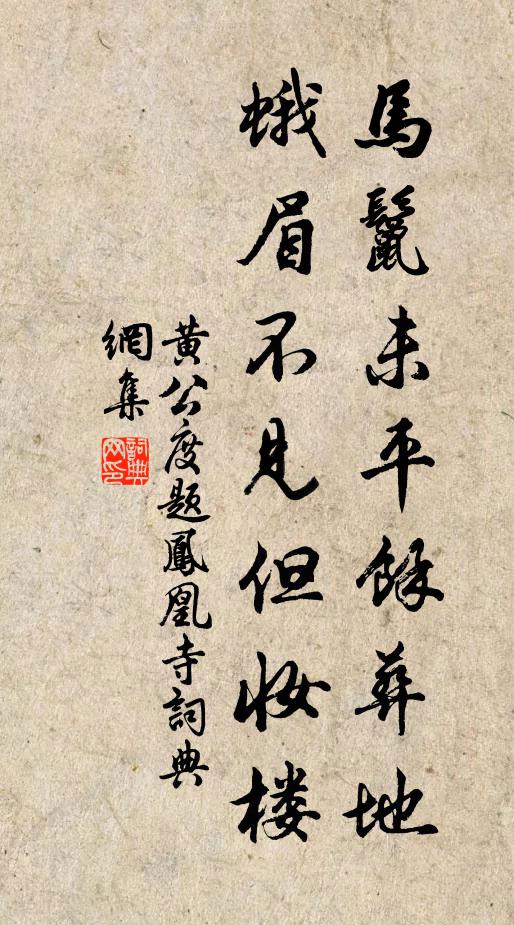 馬鬣未平餘葬地
蛾眉不見但妝楼
黄公度题鳳凰寺詞典
網集
詞典網印